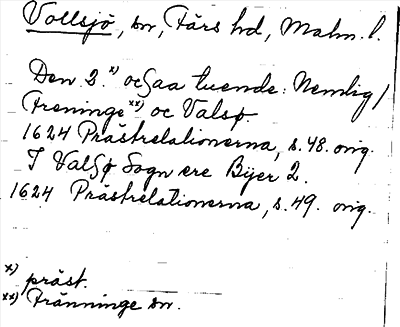 Vollsjö, sn, Färs hd, Malm. l.
Den 2.x) ocsaa tuende: Nemlig /
Freninge xx) oc Valsø.
1624 Prästrelationerna, s. 48. orig.
I Valsø Sogn ere Bÿer 2.
1624 Prästrelationerna, s. 49. orig.
x) präst.
xx) Fränninge sn.